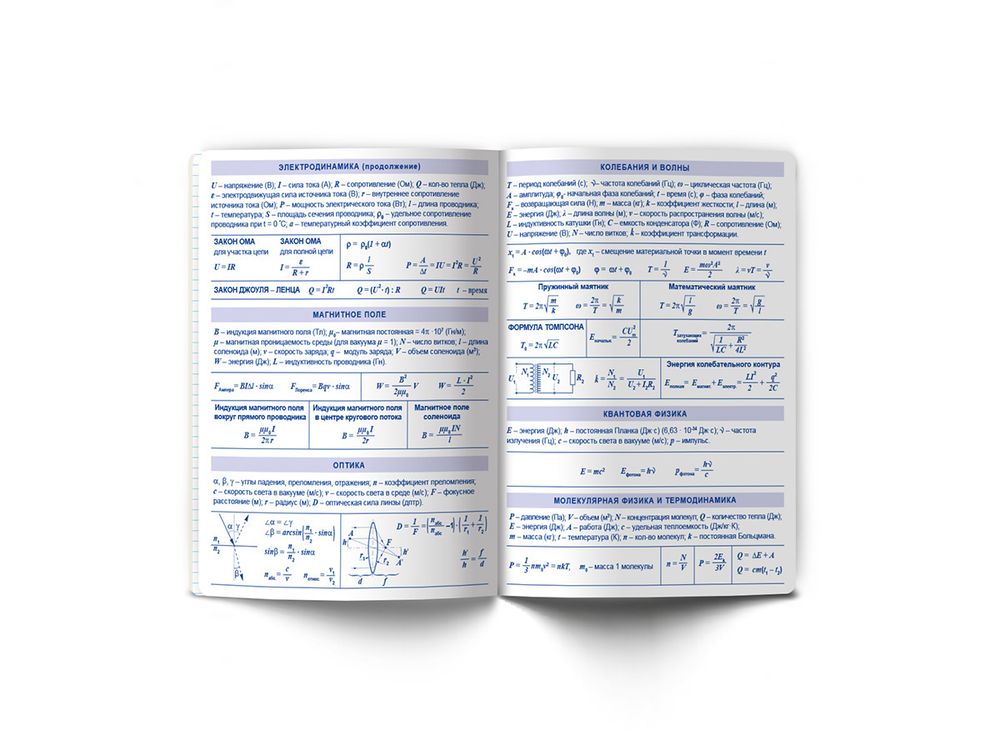 ЭЛЕКТРОДИНАМИКА (продолжение)
U – напряжение (В); I – сила тока (А); R – сопротивление (Ом); Q – кол-во тепла (Дж);
ε – электродвижущая сила источника тока (В); r – внутреннее сопротивление
источника тока (Ом); P – мощность электрического тока (Вт); l – длина проводника;
t – температура; S – площадь сечения проводника; ρ₀ – удельное сопротивление
проводника при t = 0 °C; α – температурный коэффициент сопротивления.
ЗАКОН ОМА
для участка цепи
U = IR
ЗАКОН ОМА
для полной цепи
I = ε / (R + r)
ρ = ρ₀(l + αt)
R = ρ l/S P = A/Δt = IU = I²R = U²/R
ЗАКОН ДЖОУЛЯ – ЛЕНЦА Q = I²Rt Q = (U²· t) : R Q = UIt t – время
МАГНИТНОЕ ПОЛЕ
B – индукция магнитного поля (Тл); μ₀ – магнитная постоянная = 4π ·10⁷ (Гн/м);
μ – магнитная проницаемость среды (для вакуума μ = 1); N – число витков; l – длина
соленоида (м); v – скорость заряда; q – модуль заряда; V – объем соленоида (м³);
W – энергия (Дж); L – индуктивность проводника (Гн).
F Ампера = BIΔl · sinα F Лоренца = Bqv · sinα W = B²/2μμ₀ V W = L · I²/2
Индукция магнитного поля
вокруг прямого проводника
B = μμ₀I / 2πr
Индукция магнитного поля
в центре кругового потока
B = μμ₀I / 2r
Магнитное поле
соленоида
B = μμ₀IN / l
ОПТИКА
α, β, γ – углы падения, преломления, отражения; n – коэффициент преломления;
c – скорость света в вакууме (м/с); v – скорость света в среде (м/с); F – фокусное
расстояние (м); r – радиус (м); D – оптическая сила линзы (дптр).
α γ
n₁
n₂
β
∠α = ∠γ
∠β = arcsin[n₁/n₂ · sinα]
sinβ = n₁/n₂ · sinα
n абс. = c/v n относ. = v₁/v₂
A h F r₁ r₂ F h' A'
d f
D = 1/F
h'/h = f/d
КОЛЕБАНИЯ И ВОЛНЫ
T – период колебаний (с); √– частота колебаний (Гц); ω – циклическая частота (Гц);
A – амплитуда; φ₀- начальная фаза колебаний; t – время (с); φ – фаза колебаний;
Fₓ – возвращающая сила (Н); m – масса (кг); k – коэффициент жесткости; l – длина (м);
E – энергия (Дж); λ – длина волны (м); v – скорость распространения волны (м/с),
L – индуктивность катушки (Гн); C – емкость конденсатора (Ф); R – сопротивление (Ом);
U – напряжение (В); N – число витков; k̂ – коэффициент трансформации.
xₜ = A · cos(ωt + φ₀), где xₜ – смещение материальной точки в момент времени t
Fₓ = -mA · cos(ωt + φ₀) φ = ωt + φ₀ T = 1/√ E = mω²A²/2 λ = vT = v/√
Пружинный маятник
T = 2π√(m/k) ω = 2π/T = √(k/m)
Математический маятник
T = 2π√(l/g) ω = 2π/T = √(g/l)
ФОРМУЛА ТОМПСОНА
T₀ = 2π√LC
E начальн. = CU²m/2
T затухающих колебаний = 2π / √(1/LC + R²/4L²)
U₁ N₁ N₂ U₂ R₂
k = N₁/N₂ = U₁/(U₂ + I₂R₂)
Энергия колебательного контура
E полная = E магнит + E электр. = LI²/2 + q²/2C
КВАНТОВАЯ ФИЗИКА
E – энергия (Дж); h – постоянная Планка (Дж·с) (6,63 · 10⁻³⁴ Дж·с); √ – частота
излучения (Гц); c – скорость света в вакууме (м/с); p – импульс.
E = mc² E фотона = h√ p фотона = h√/c
МОЛЕКУЛЯРНАЯ ФИЗИКА И ТЕРМОДИНАМИКА
P – давление (Па); V – объем (м³); N – концентрация молекул; Q – количество тепла (Дж);
E – энергия (Дж); A – работа (Дж); c – удельная теплоемкость (Дж/кг·К);
m – масса (кг); t – температура (К); n – кол-во молекул; k – постоянная Больцмана.
P = 1/3 nm₀v² = nkT, m₀ – масса 1 молекулы
n = N/V
P = 2Eₖ/3V
Q = ΔE + A
Q = cm(t₁ – t₂)